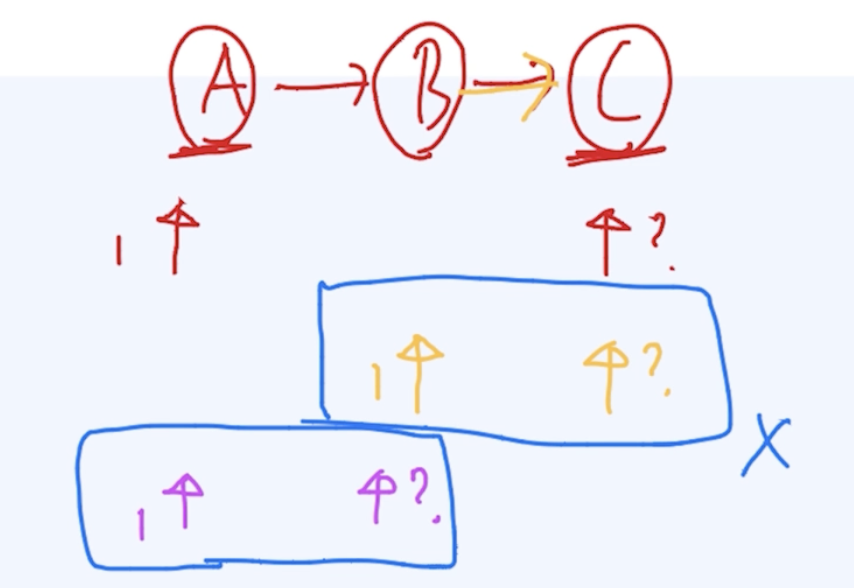 A → B → C
1 ↑ ↑ ?
1 ↑ ↑ ?
X
1 ↑ ↑ ?